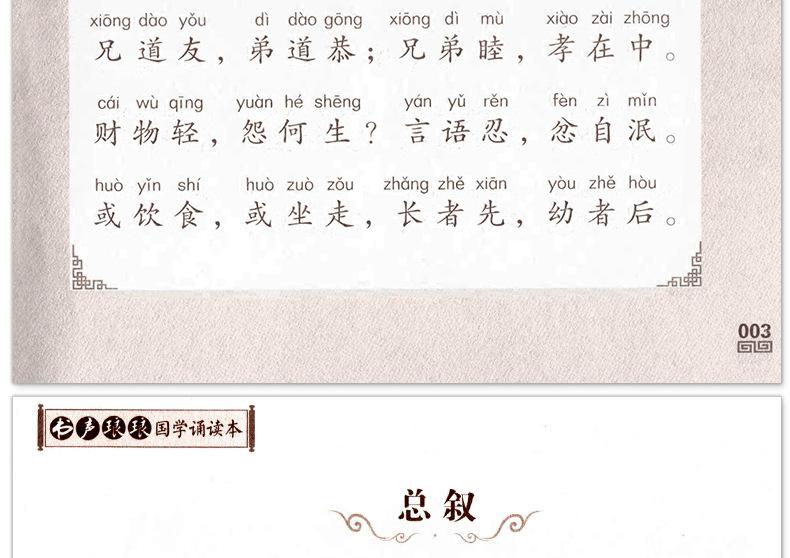 xiōng dào yǒu dì dào gōng xiōng dì mù xiào zài zhōng
兄道友，弟道恭；兄弟睦，孝在中。
cái wù qīng yuàn hé shēng yán yǔ rěn fèn zì mǐn
财物轻，怨何生？言语忍，忿自泯。
huò yǐn shí huò zuò zǒu zhǎng zhě xiān yòu zhě hòu
或饮食，或坐走，长者先，幼者后。
003
书声琅琅国学诵读本
总叙